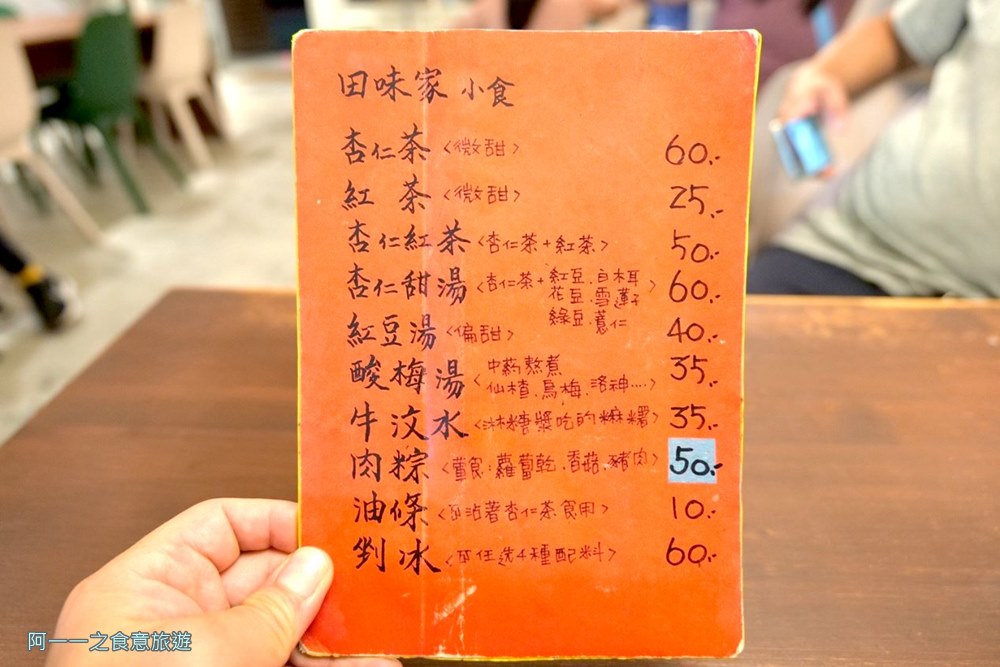 田味家 小食
杏仁茶 <微甜> 60.-
紅 茶 <微甜> 25.-
杏仁紅茶 <杏仁茶+紅茶> 50.-
杏仁甜湯 <杏仁茶+紅豆.白木耳 60.-
花豆.雪蓮子>
綠豆.薏仁
紅豆湯 <偏甜> 40.-
酸梅湯 <中藥熬煮 35.-
仙楂.烏梅.洛神....>
牛汶水 <沐糖漿吃的麻糬> 35.-
肉粽 <葷食:蘿蔔乾.香菇.豬肉> 50.-
油條 <可沾著杏仁茶食用> 10.-
剉冰 <可任选4種配料> 60.-
阿一一之食意旅遊